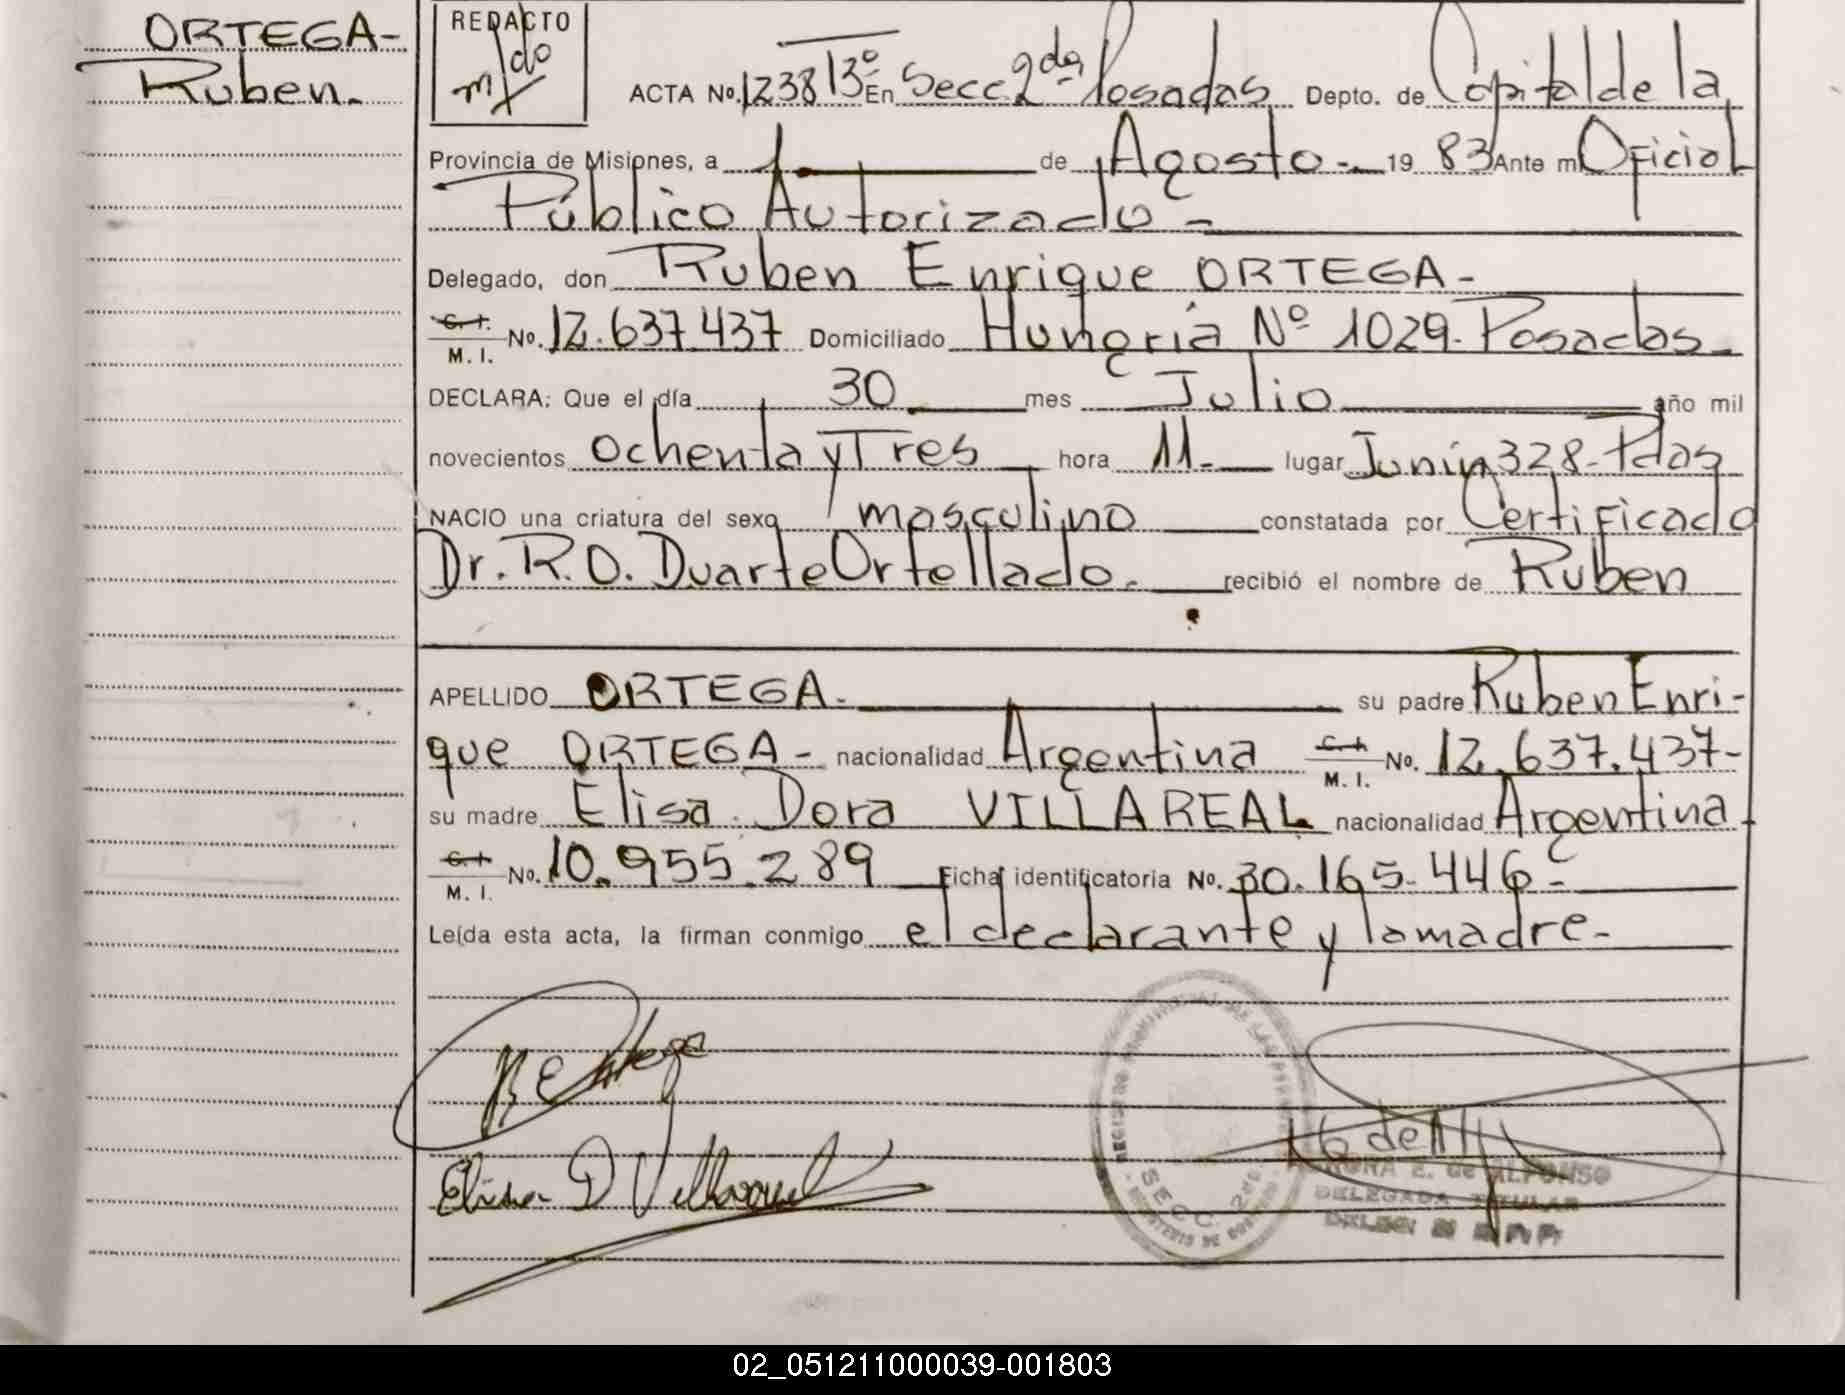 ORTEGA-
Ruben.
REDACTO
ACTA No. 1238 T3º En Secc. 2da Posadas Depto. de Capital de la
Provincia de Misiones, a 1 de Agosto - 19 83 Ante mi Oficial
Público Autorizado -
Delegado, don Ruben Enrique ORTEGA -
C. I. M. I. No. 12.637.437 Domiciliado Hungría Nº 1029. Posadas -
DECLARA: Que el día 30 mes Julio año mil
novecientos ochenta y Tres hora 11. lugar Junín 328. Pdas
NACIO una criatura del sexo masculino constatada por Certificado
Dr. R. O. Duarte Ortellado. recibió el nombre de Ruben
APELLIDO ORTEGA - su padre Ruben Enri-
que ORTEGA - nacionalidad Argentina C. I. M. I. No. 12.637.437-
su madre Elisa Dora VILLAREAL nacionalidad Argentina
C. I. M. I. No. 10.955.289 Ficha identificatoria No. 30.165.446 -
Leída esta acta, la firman conmigo el declarante y la madre.
R E Ortega
Elisa D Villareal
SECC. 2da.
E. de ALFONSO
DELEGADA TITULAR
02_051211000039-001803